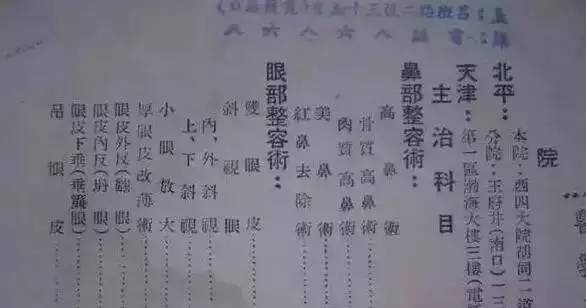 院
北平：
本院：西四大院胡同一道
分院：王府井(南口)一三
天津：第一區渤海大樓三樓(電
主治科目
鼻部整容術：
高鼻術
骨質高鼻術……
肉質高鼻術……
美鼻術……
紅鼻去除術……
眼部整容術：
雙眼皮……
斜視眼……
內、外斜視……
上、下斜視……
小眼放大……
厚眼皮改薄術……
眼皮外反(翻眼)……
眼皮內反(眼)……
眼皮下垂(垂簾眼)……
吊眼皮……